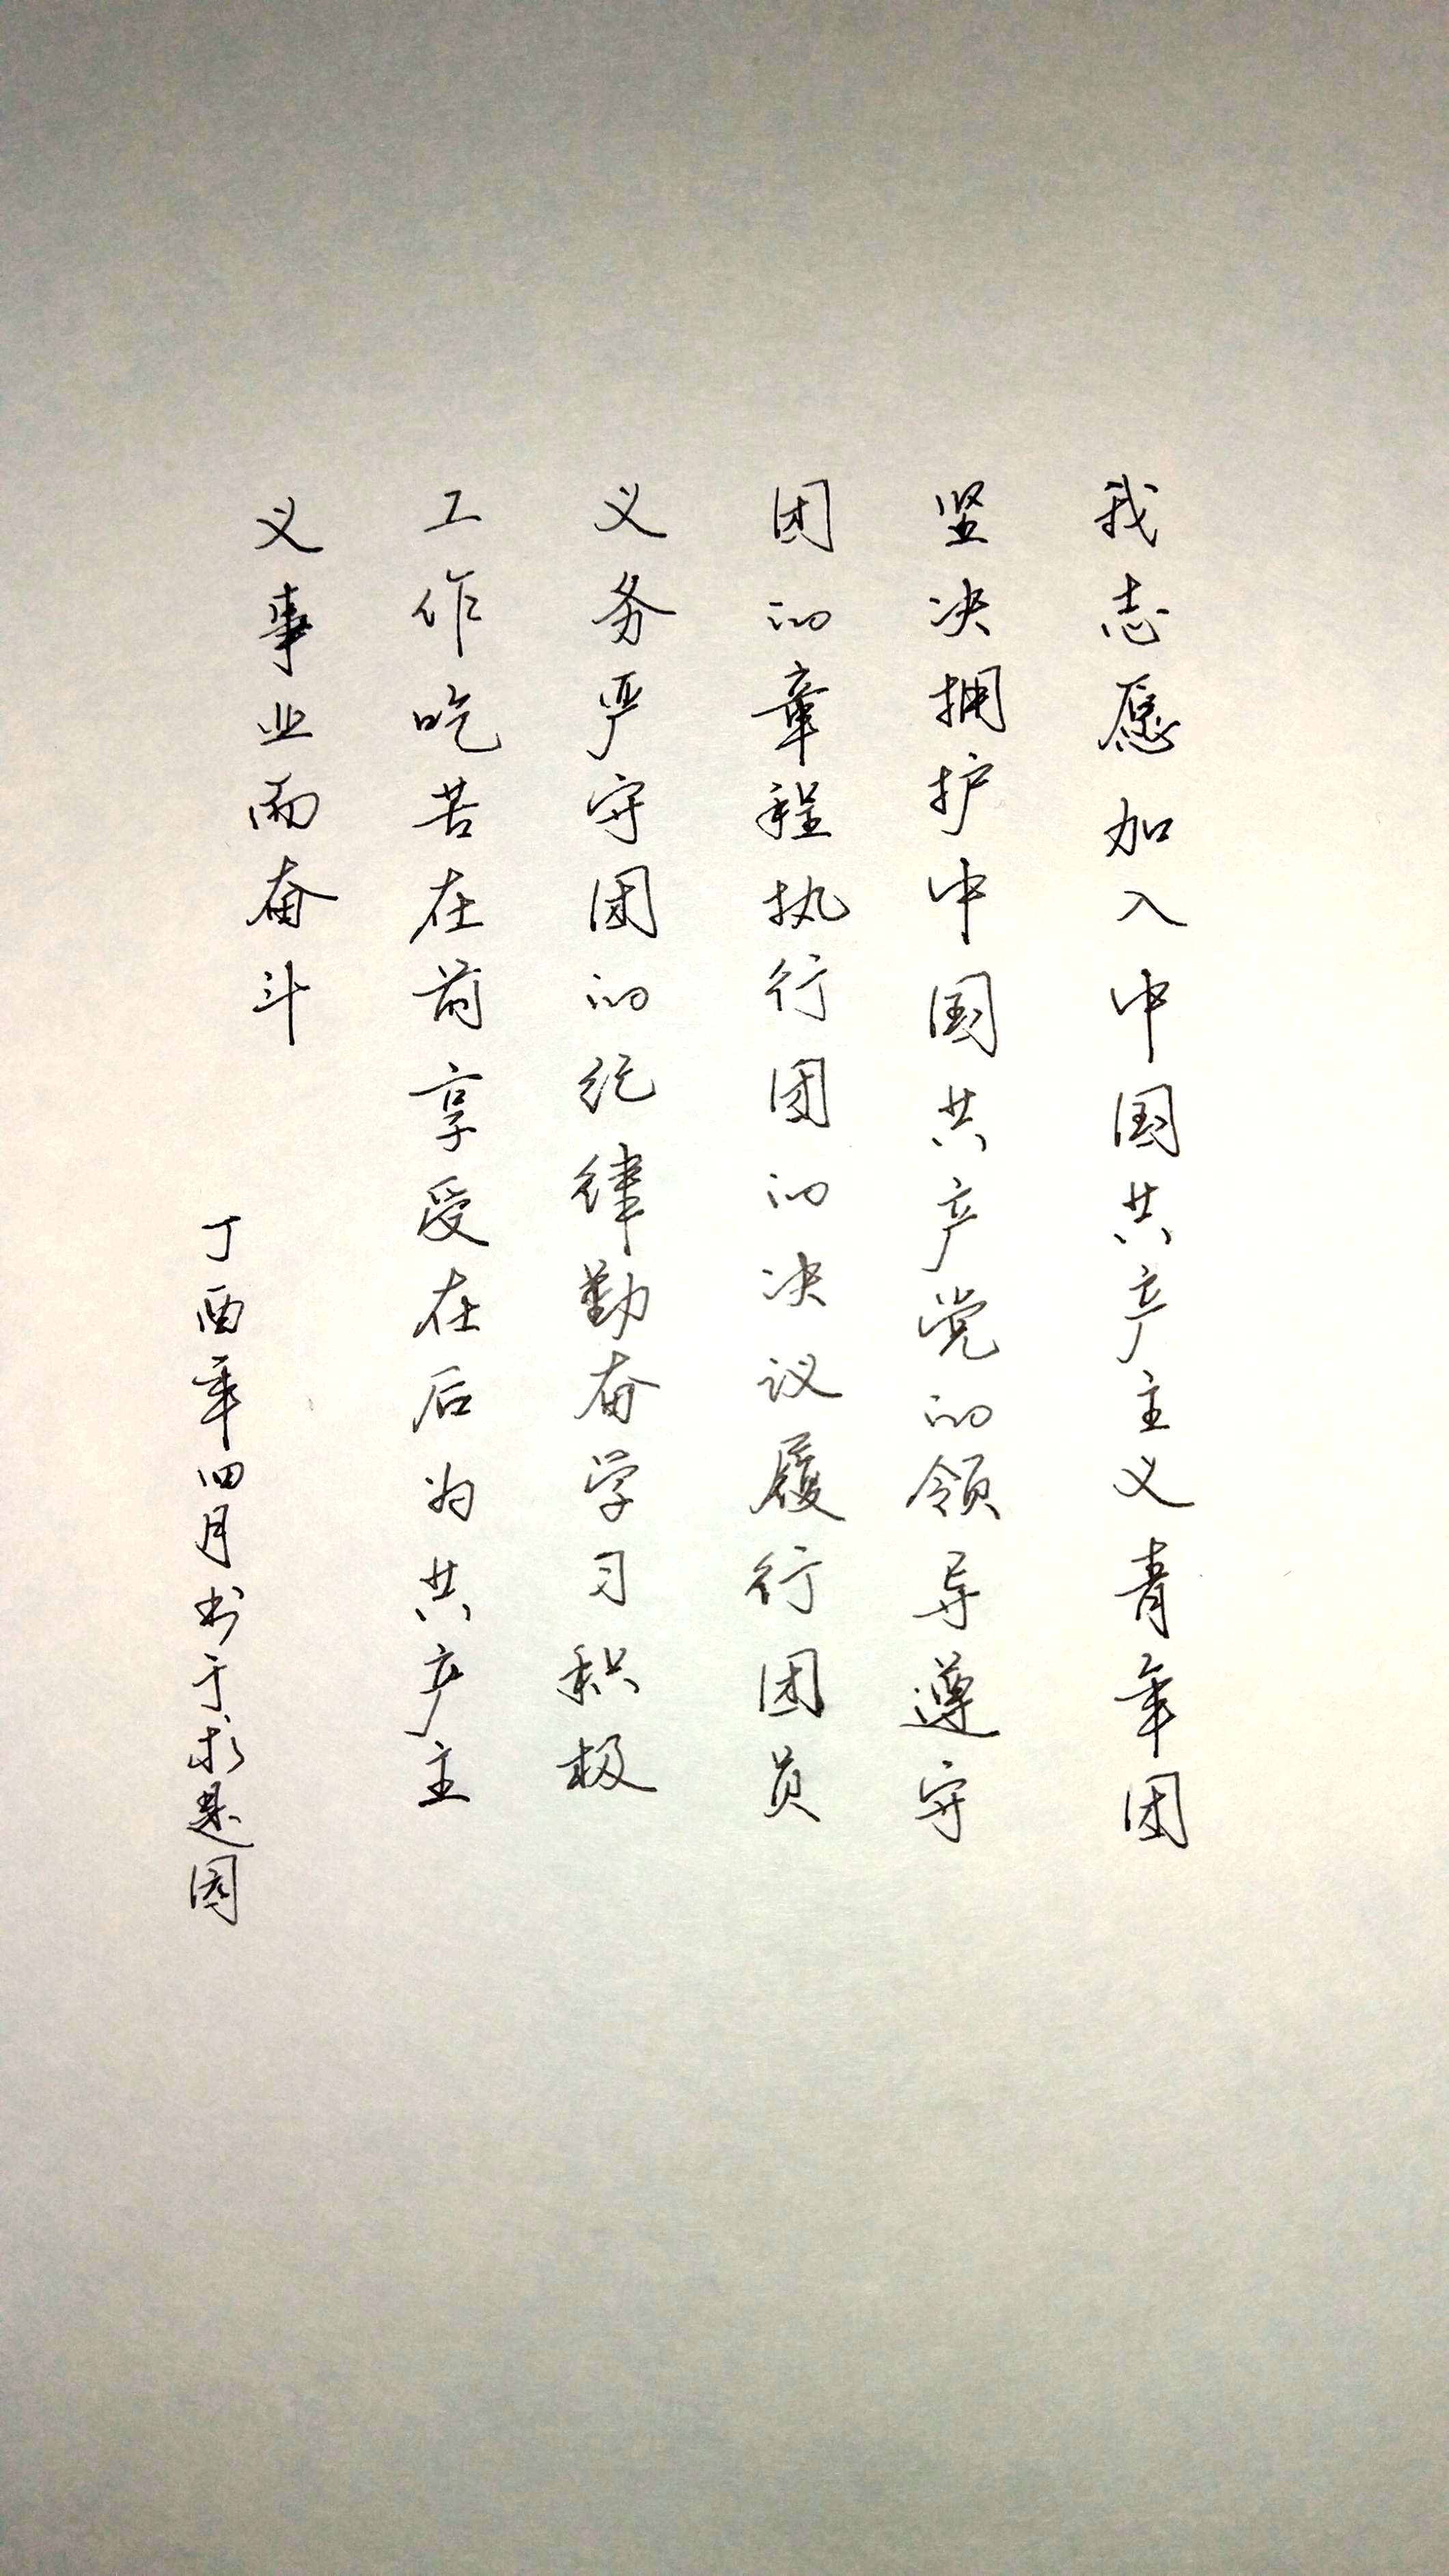 我志愿加入中国共产主义青年团
坚决拥护中国共产党的领导遵守
团的章程执行团的决议履行团员
义务严守团的纪律勤奋学习积极
工作吃苦在前享受在后为共产主
义事业而奋斗
丁酉年四月书于求是园